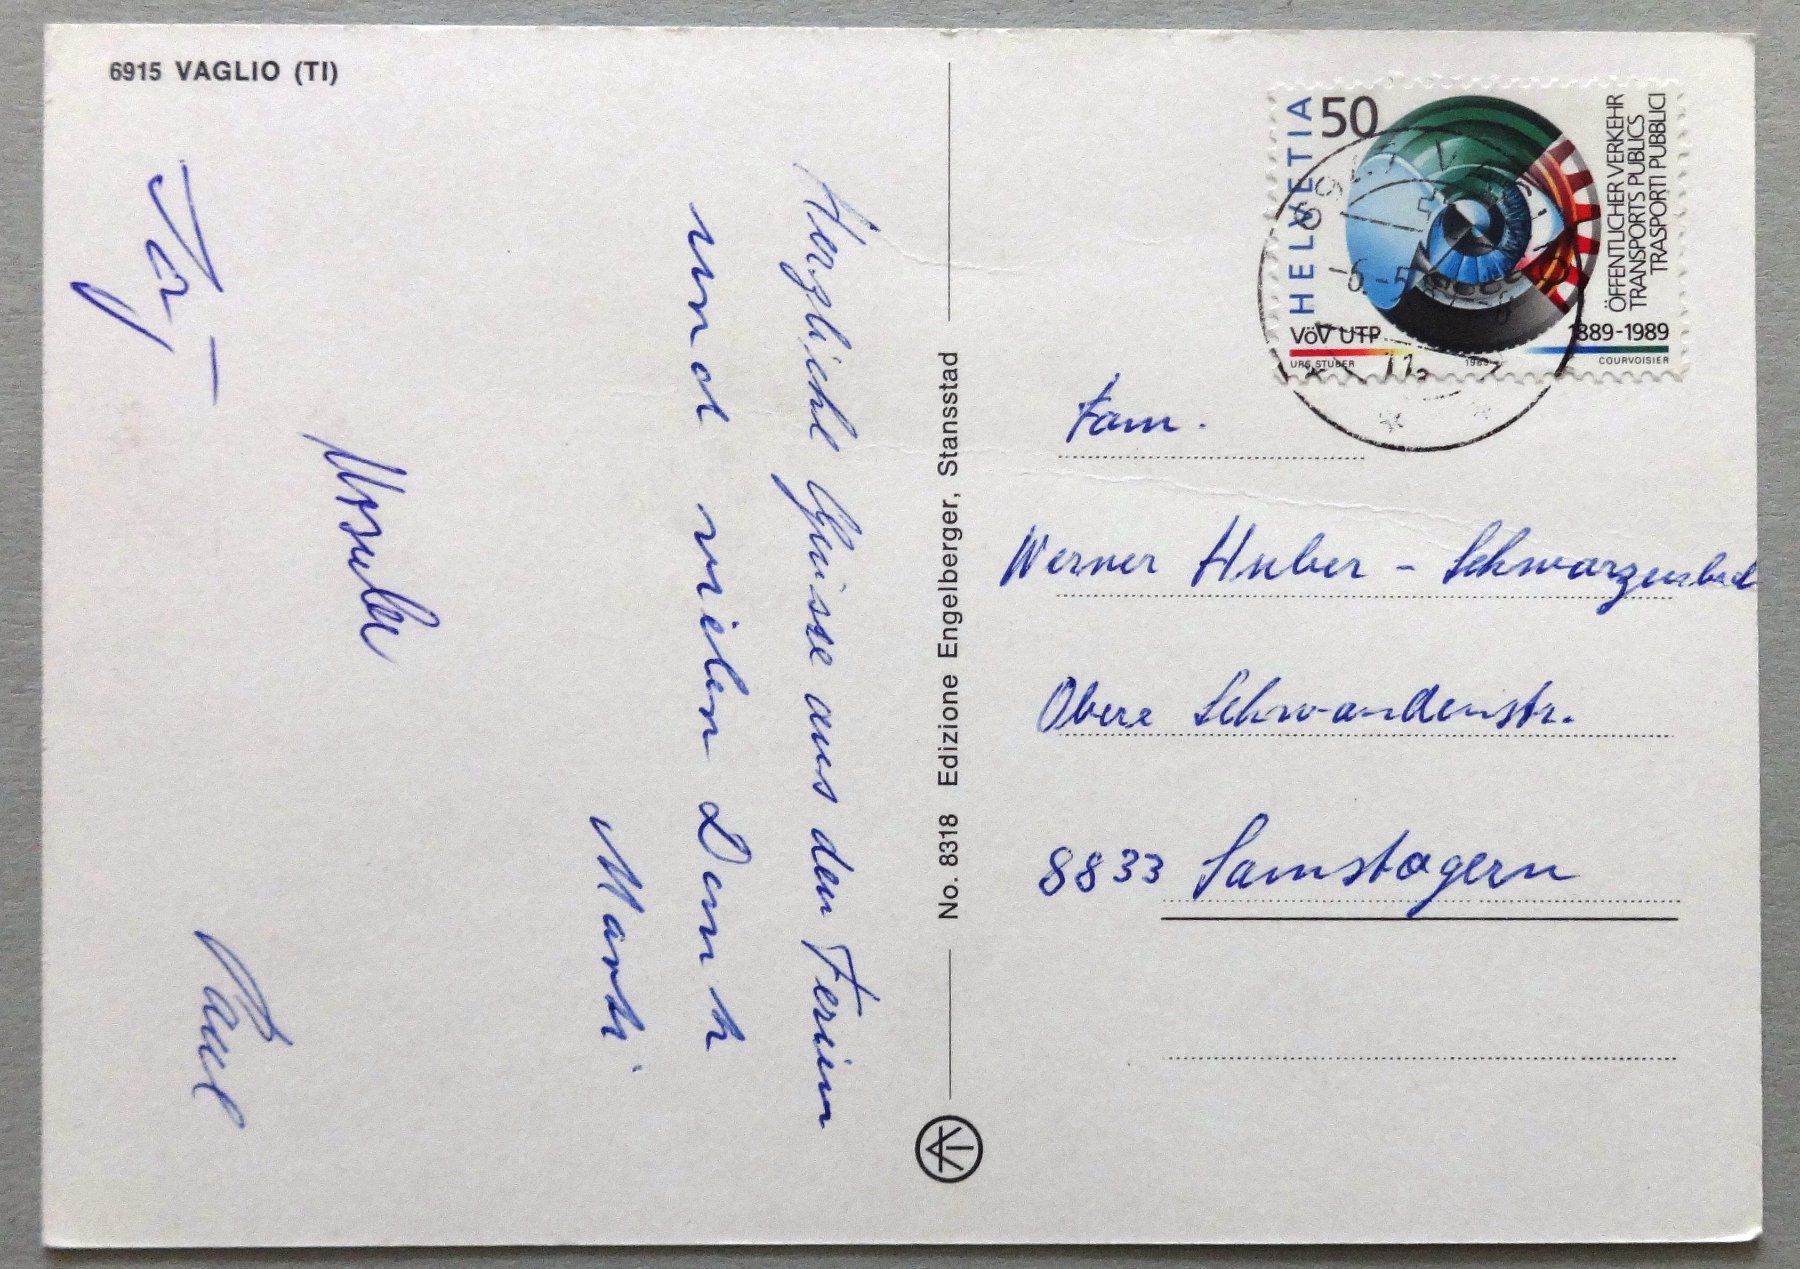 6915 VAGLIO (TI)
Herzliche Grüsse aus den Ferien
und vielen Dank
Marti
Paul
Ursula
No. 8318 Edizione Engelberger, Stansstad
HELVETIA
50
ÖFFENTLICHER VERKEHR
TRANSPORTS PUBLICS
TRASPORTI PUBBLICI
VöV UTP
1889-1989
URS STUBER
1989
COURVOISIER
-6.-5
Fam.
Werner Huber - Schwarzenbach
Obere Schwandenstr.
8833 Samstagern